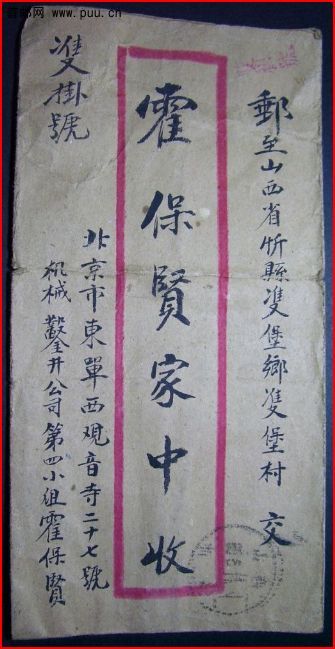 郵至山西省忻縣雙堡鄉雙堡村 交
霍保賢家中收
雙掛號
北京市東單西观音寺二十七號
机械鑿井公司第四小组霍保賢
www.puu.cn